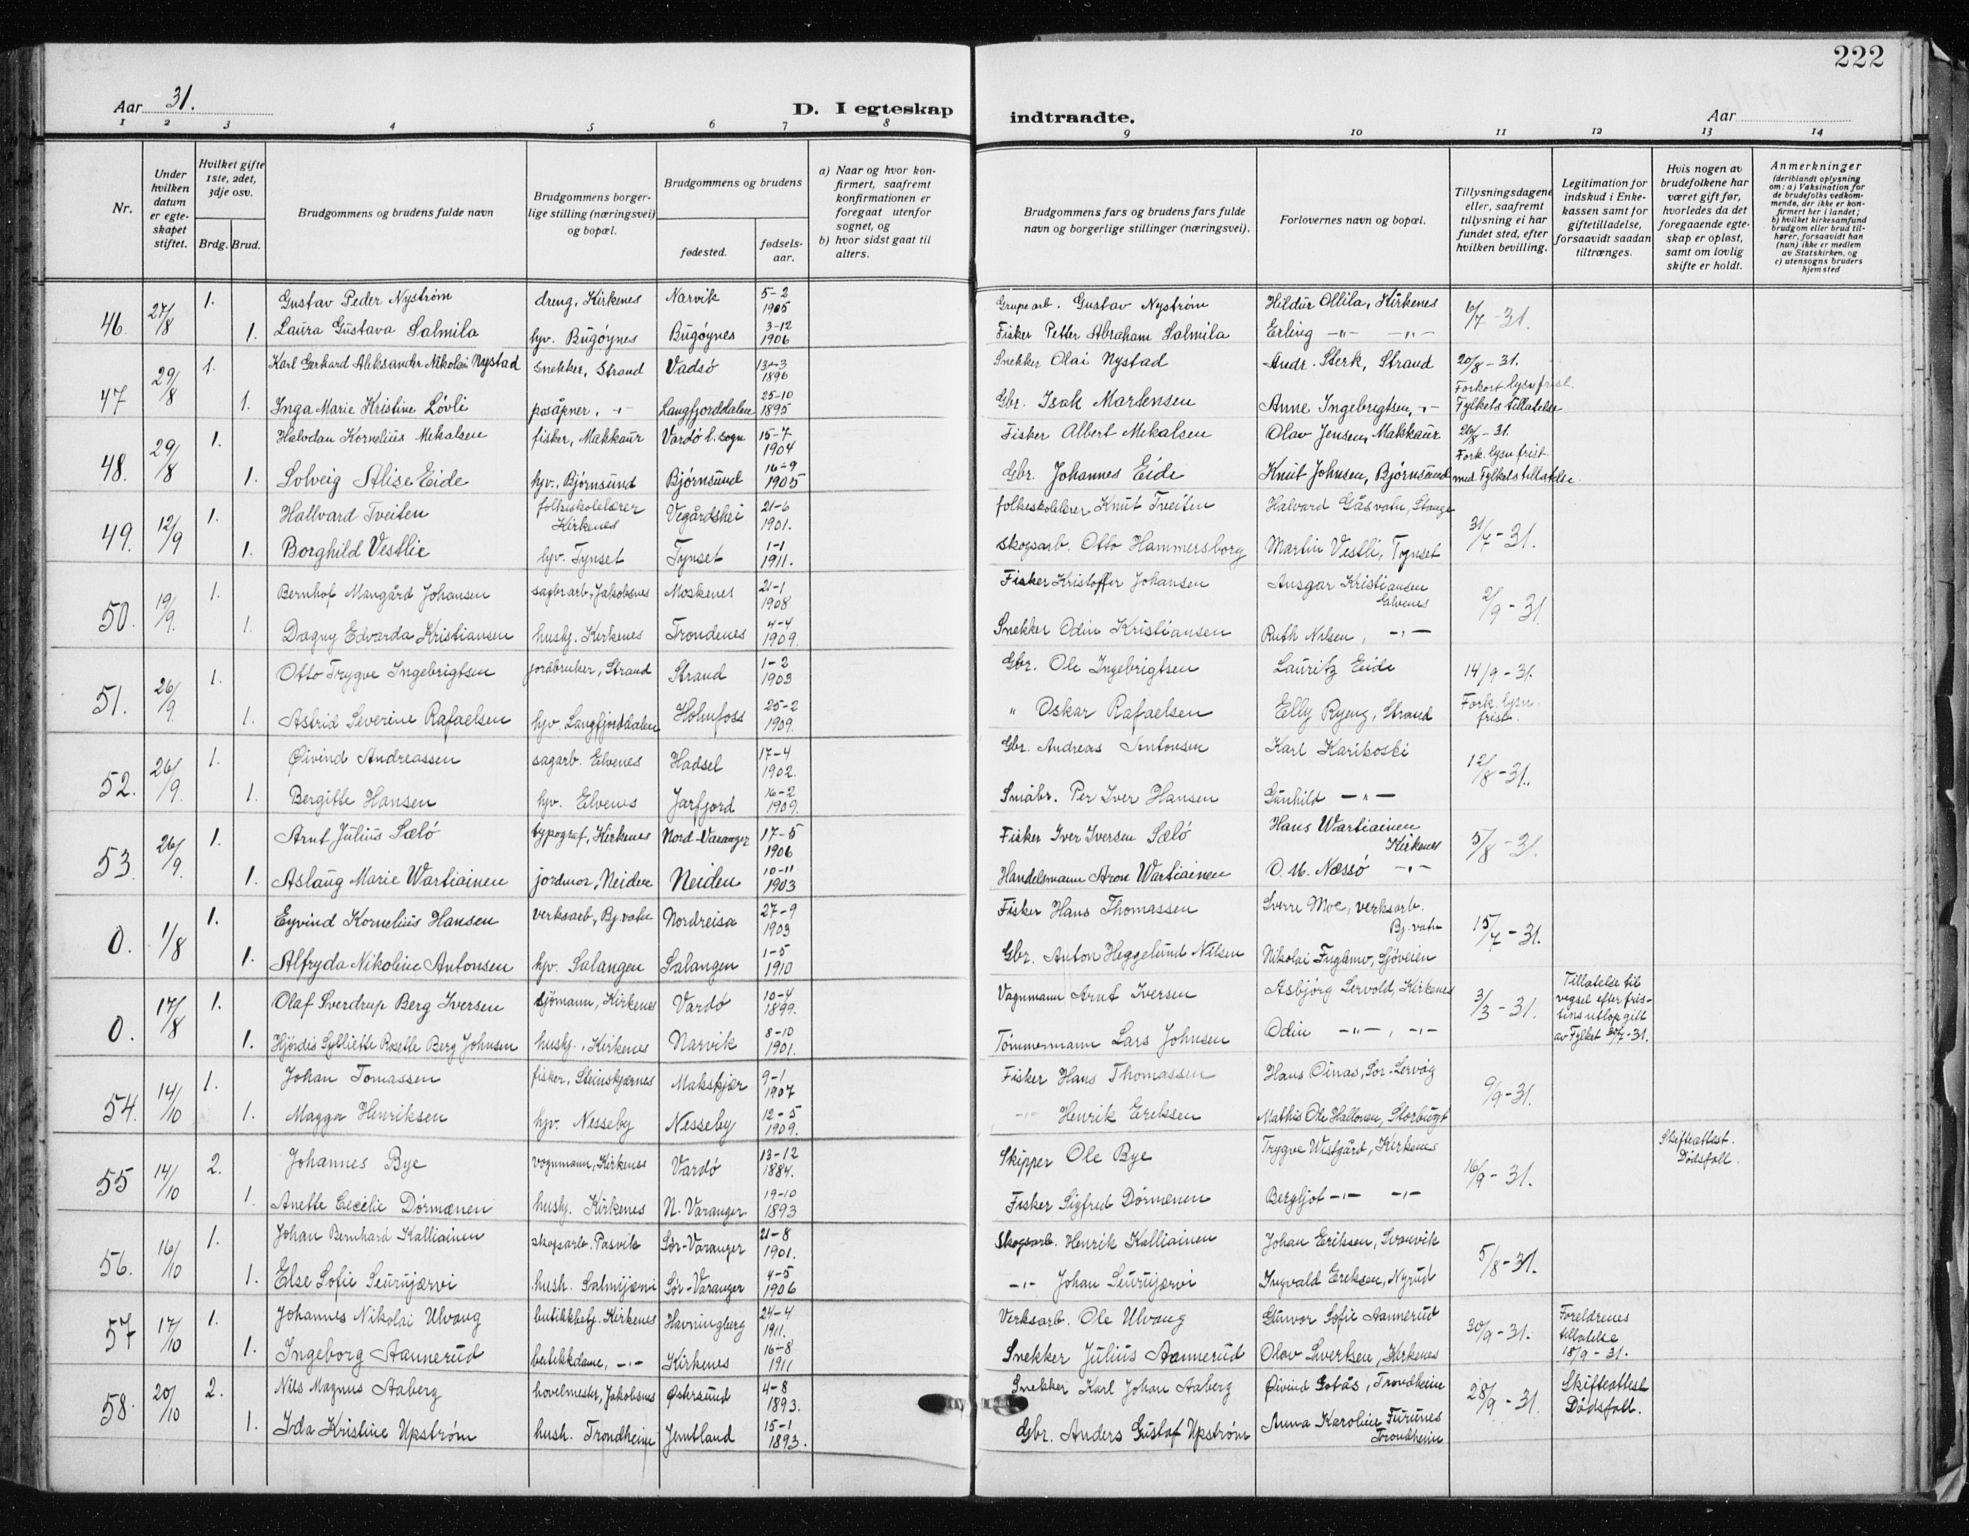 222
Aar 31.
D. I egteskap indtraadte.
Aar
1 2 3 4 5 6 7 8 9 10 11 12 13 14
Nr.
Under hvilken datum er egteskapet stiftet.
Hvilket gifte 1ste, 2det, 3dje osv.
Brdg. Brud.
Brudgommens og brudens fulde navn
Brudgommens borgerlige stilling (næringsvei) og bopæl.
Brudgommens og brudens
fødested.
fødselsaar.
a) Naar og hvor konfirmert, saafremt konfirmationen er foregaat utenfor sognet, og
b) hvor sidst gaat til alters.
Brudgommens fars og brudens fars fulde navn og borgerlige stillinger (næringsvei).
Forlovernes navn og bopæl.
Tillysningsdagene eller, saafremt tillysning ei har fundet sted, efter hvilken bevilling.
Legitimation for indskud i Enkekassen samt for giftetilladelse, forsaavidt saadan tiltrænges.
Hvis nogen av brudefolkene har været gift før, hvorledes da det foregaaende egteskap er opløst, samt om lovlig skifte er holdt.
Anmerkninger
(deriblandt oplysning om: a) Vaksination for de brudefolks vedkommende, der ikke er konfirmert her i landet; b) hvilket kirkesamfund brudgom eller brud tilhører, forsaavidt han (hun) ikke er medlem av Statskirken, og c) utensogns bruders hjemsted
46. 27/8 1. Gustav Peder Nystrøm dreng, Kirkenes Narvik 5-2 1905 Grupearb. Gustav Nystrøm Hildur Ollila, Kirkenes 6/7-31.
1. Laura Gustava Salmila hjv. Bugøynes Bugøynes 3-12 1906 Fisker Petter Abraham Salmila Erling -"- -"-
47 29/8 1. Karl Gerhard Aleksander Nikolai Nystad snekker, Strand Vadsø 13-3 1896 Snekker Olai Nystad Andr. Sterk, Strand 20/8-31. Forkort lysn frist.
1. Inga Marie Kristine Løvli posåpner, -"- Langfjorddalen 25-10 1895 Gbr. Isak Martensen Anne Ingebrigtsen, -"- Fylkets tillatelse
48. 29/8 1. Halvdan Kornelius Mikalsen fisker, Makkaur Vardø l. sogn 15-7 1904 Fisker Albert Mikalsen Olav Jensen, Makkaur 26/8-31. Fork. lysn frist.
1. Solveig Alise Eide hjv. Bjørnsund Bjørnsund 16-9 1905 Gbr. Johannes Eide Knut Johnsen, Bjørnsund med Fylkets tillatelse.
49. 12/9 1. Hallvard Tveiten folkeskolelærer Kirkenes Vegårdshei 21-6 1901. folkeskolelærer Knut Tveiten Halvard Gåsvatn, Stange 31/7-31.
1. Borghild Vestlie hjv. Tynset Tynset 1-1 1911. Skogsarb. Otto Hammersborg Martin Vestli, Tynset
50. 19/9. 1. Bernhof Mangård Johansen sagbrarb, Jakobsnes Moskenes 21-1 1908 Fisker Kristoffer Johansen Ansgar Kristiansen Elvenes 2/9-31
1. Dagny Edvarda Kristiansen hushj. Kirkenes Trondenes 4-4 1909. Snekker Odin Kristiansen Ruth Nilsen, -"-
51. 26/9. 1. Otto Trygve Ingebrigtsen jordbruker, Strand Strand 1-2 1903 Gbr. Ole Ingebrigtsen Lauritz Eide 14/9-31.
1. Astrid Severine Rafaelsen hjv. Langfjorddalen Holmfoss 25-2 1909. " Oskar Rafaelsen Elly Ryeng, Strand Fork. lysn. frist.
52. 26/9. 1. Øivind Andreassen sagarb. Elvenes Hadsel 17-4 1902. Gbr. Andreas Antonsen Karl Karikoski 12/8-31.
1. Bergitte Hansen hjv. Elvenes Jarfjord 16-2 1909. Småbr. Per Iver Hansen Gunhild -"-
53. 26/9. 1. Arnt Julius Sælø typograf, Kirkenes Nord-Varanger 17-5 1906 Fisker Iver Iversen Sælø Hans Wartiainen Kirkenes 5/8-31.
1. Aslaug Marie Wartiainen jordmor, Neiden Neiden 10-11 1903 Handelsmann Aron Wartiainen O. M. Næssø -"-
0. 1/8 1. Eyvind Kornelius Hansen verksarb, Bj.vatn Nordreisa 27-9 1903 Fisker Hans Thomassen Sverre Moe, verksarb. Bj.vatn 15/7-31.
1. Alfryda Nikoline Antonsen hjv. Salangen Salangen 1-5 1910 Gbr. Anton Heggelund Nilsen Nikolai Fuglemo, Sjøveien
0. 17/8 1. Olaf Sverdrup Berg Iversen sjømann, Kirkenes Vardø 10-4 1899. Vognmann Arnt Iversen Asbjørg Lervold, Kirkenes 3/3-31. Tillatelse til vegsel efter fristins utløp gitt
1. Hjørdis Rosette Berg Johnsen hushj., Kirkenes Narvik 8-10 1901. Tømmermann Lars Johnsen Odin -"-, -"- av Fylket 30/7-31.
54. 14/10 1. Johan Tomassen fisker, Steinskjærnes Makskjær 9-1 1907 Fisker Hans Thomassen Hans Oinas, Sør-Lervåg 9/9-31.
1. Magga Henriksen hjv. Nesseby Nesseby 12-5 1909. -"- Henrik Eriksen Mathis Ole Hallonen, Storbugt
55 14/10 2. Johannes Bye vognmann, Kirkenes Vardø 13-12 1884. Skipper Ole Bye Trygve Westgård, Kirkenes 16/9-31. Skifteattest. Dødsfall.
1. Anette Cecelie Dørmænen hushj. Kirkenes N. Varanger 19-10 1893 Fisker Sigfred Dørmænen Bergljot -"- -"-
56. 16/10 1. Johan Bernhard Kalliainen skogsarb. Pasvik Sør-Varanger 21-8 1901. Skogsarb. Henrik Kalliainen Johan Eriksen, Svanvik 5/8-31.
1. Else Sofie Seurujærvi hush. Salmijærvi Sør-Varanger 4-5 1906 -"- Johan Seurujærvi Ingvald Eriksen, Nyrud
57 17/10 1. Johannes Nikolai Ulvang butikkbetj. Kirkenes Havningberg 24-4 1911. Verksarb. Ole Ulvang Gunvor Sofie Aannerud 30/9-31. Foreldrenes tillatelse
1. Ingeborg Aannerud butikkdame, -"- Kirkenes 16-8 1911 Snekker Julius Aannerud Olav Sivertsen, Kirkenes 18/9-31.
58. 20/10 2. Nils Magnus Aaberg høvelmester, Jakobsnes Østersund 4-8 1893. Snekker Karl Johan Aaberg Øivind Gotås, Trondheim 28/9-31. Skifteattest Dødsfall.
1. Ida Kristine Upstrøm hush. Trondheim Jemtland 15-1 1893. Gbr. Anders Gustaf Upstrøm Anna Karoline Furunes Trondheim